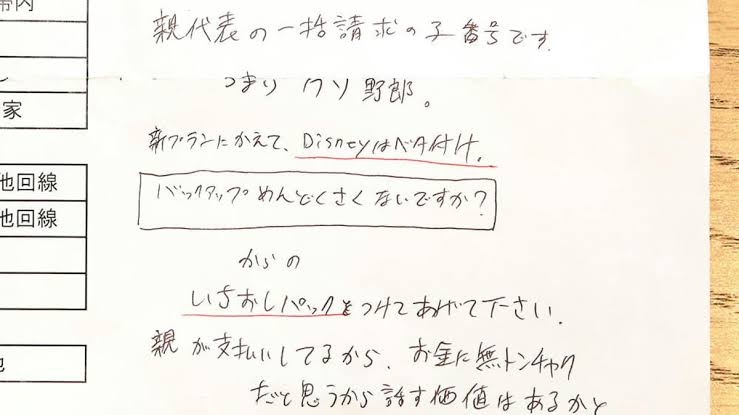 帯内
家
他回線
他回線
親代表の一括請求の子番号です.
つまり クソ野郎。
新プランにかえて、Disneyはベタ付け.
バックアップめんどくさくないですか?
からの
いちおしパックをつけてあげて下さい.
親が支払いしてるから、お金に無トンチャク
だと思うから話す価値はあるかと